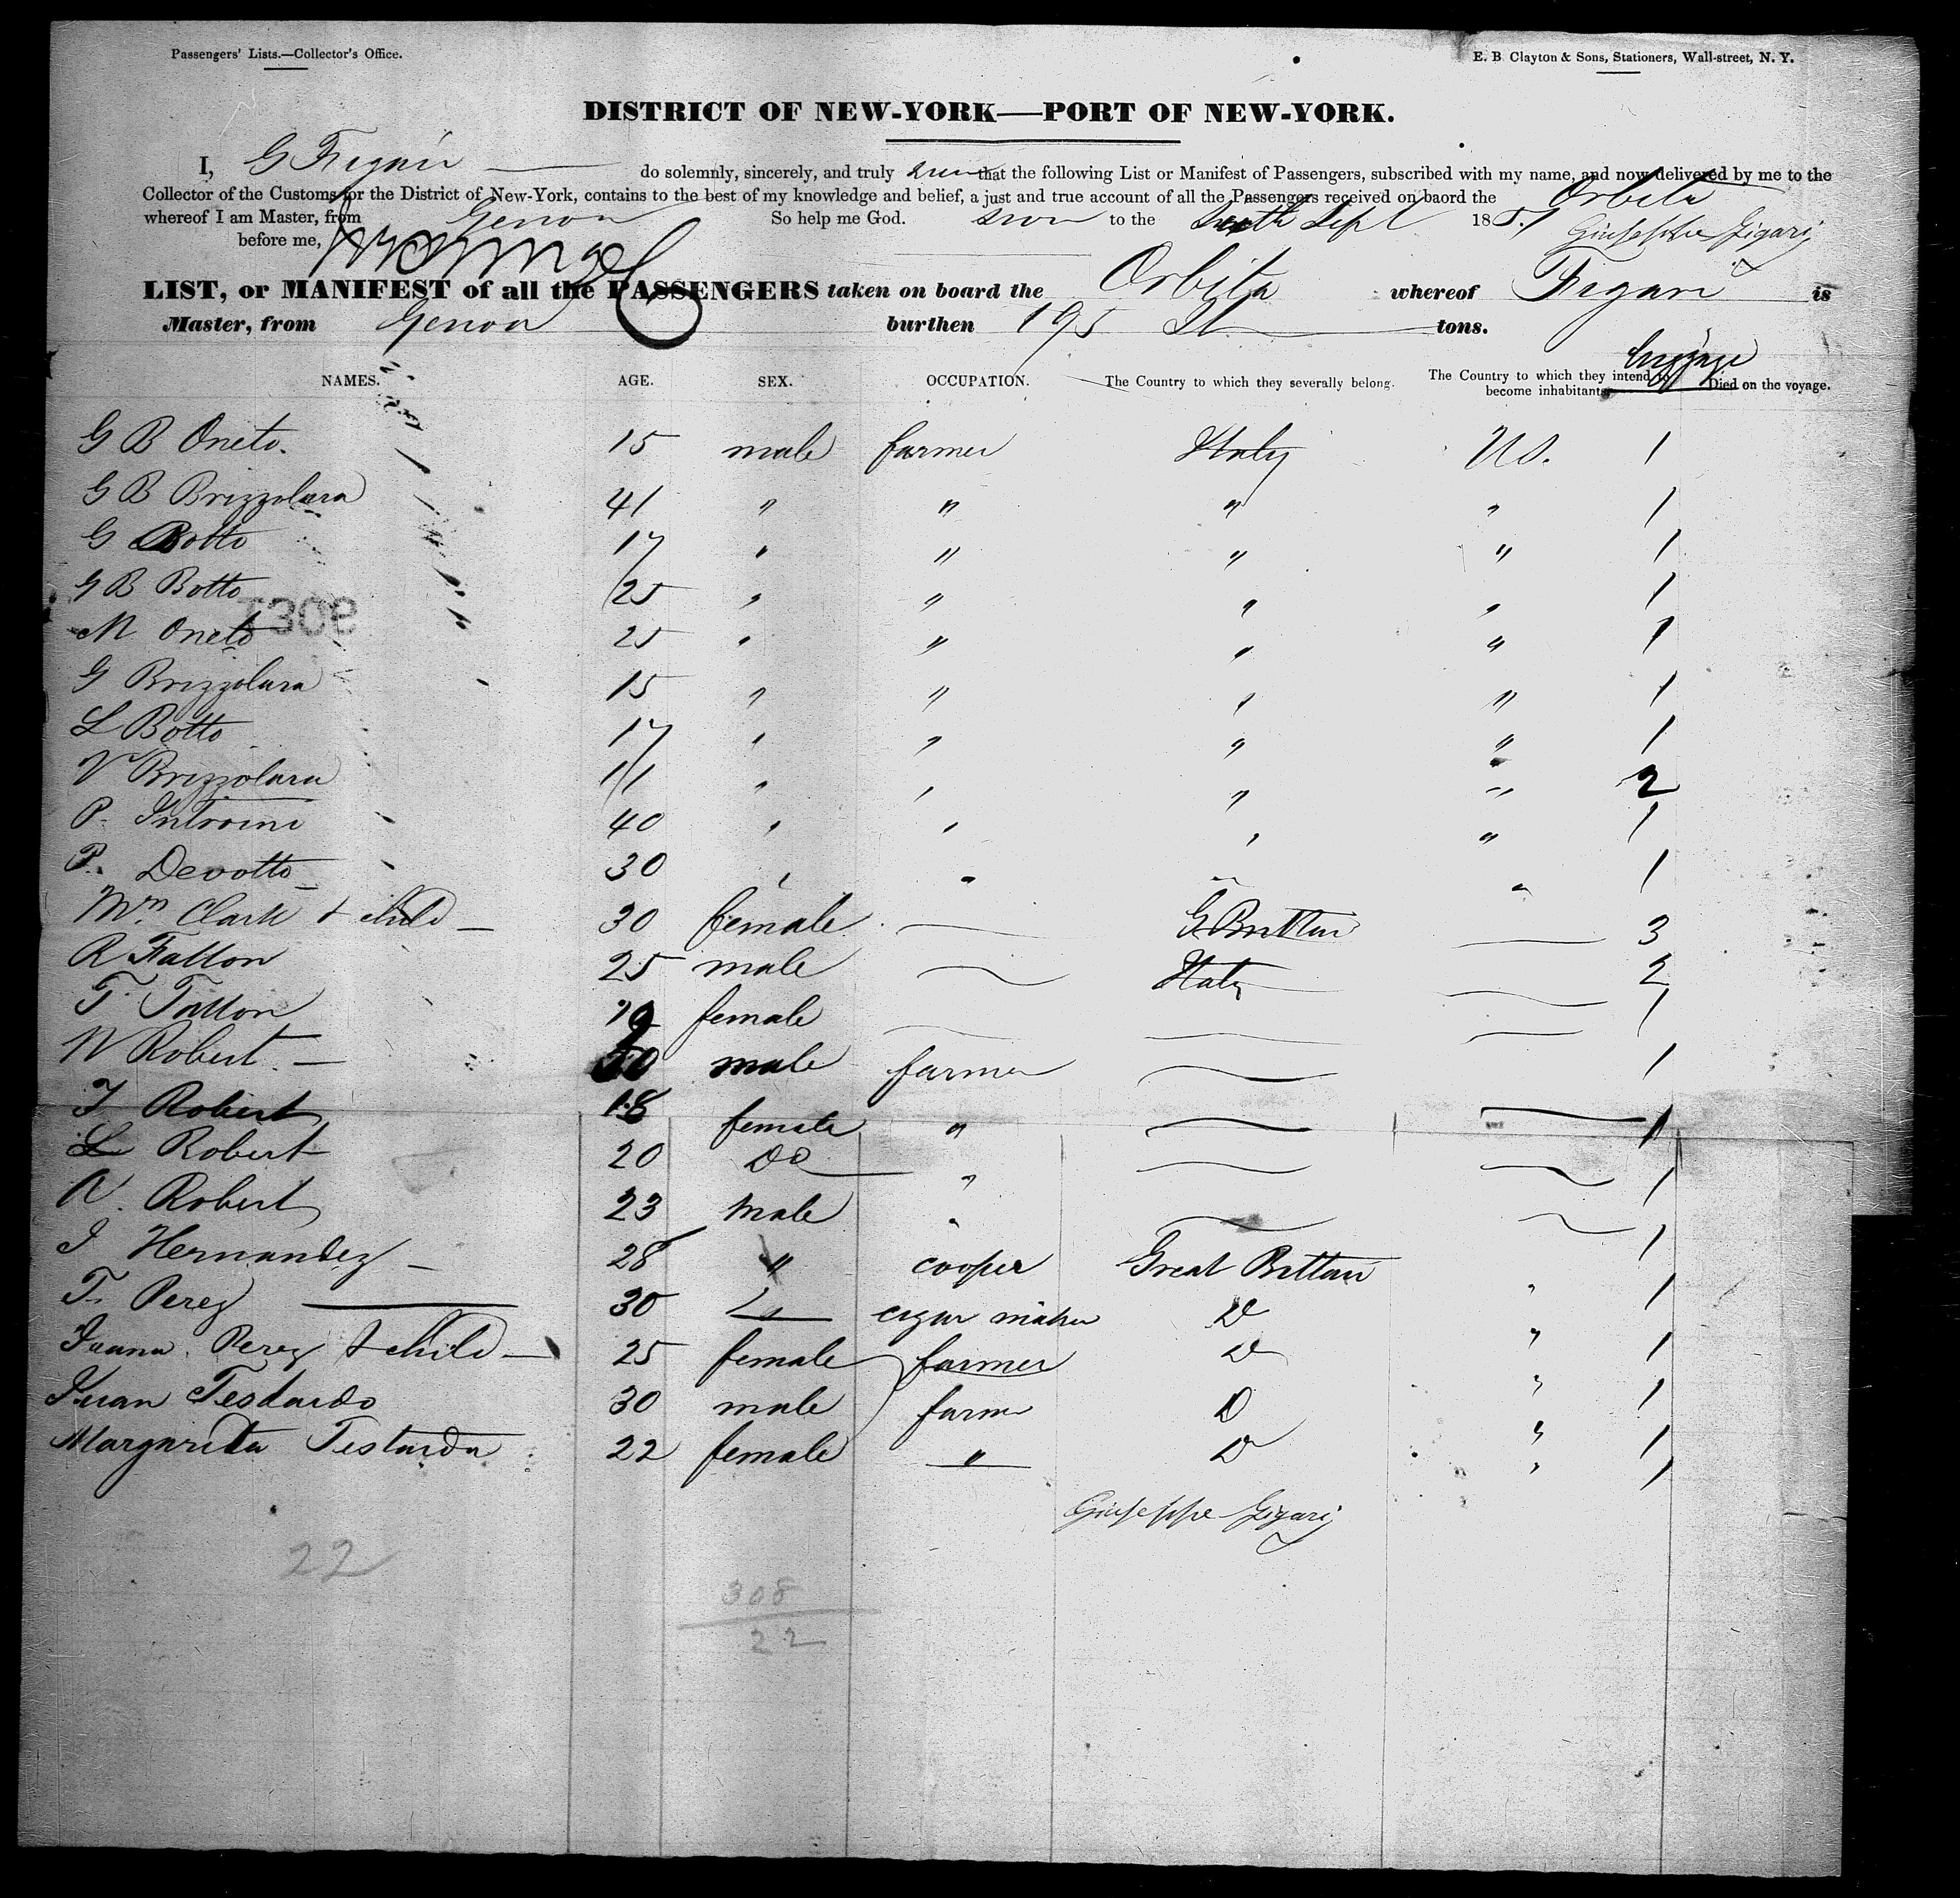 Passengers' Lists.—Collector's Office.
E. B. Clayton & Sons, Stationers, Wall-street, N. Y.
DISTRICT OF NEW-YORK—PORT OF NEW-YORK.
I, G Figari do solemnly, sincerely, and truly that the following List or Manifest of Passengers, subscribed with my name, and now delivered by me to the
Collector of the Customs for the District of New-York, contains to the best of my knowledge and belief, a just and true account of all the Passengers received on baord the Orbita
whereof I am Master, from Genoa So help me God. to the Sept 1851
before me, Giuseppe Figari
LIST, or MANIFEST of all the PASSENGERS taken on board the Orbita whereof Figari is
Master, from Genoa burthen 195 tons.
luggage
NAMES. AGE. SEX. OCCUPATION. The Country to which they severally belong. The Country to which they intend to become inhabitants Died on the voyage.
G B Oneto. 15 male farmer Italy US. 1
G B Brizzolara 41 " " " " 1
G Botto 17 " " " " 1
G B Botto 25 " " " " 1
M Oneto 25 " " " " 1
G Brizzolara 15 " " " " 1
L Botto 17 " " " " 1
V Brizzolara 11 " " " " 2
P. Introini 40 " " " " 1
P. Devotto 30 " " " " 1
Mrs Clark & child — 30 female — G Brittan — 3
R Fallon 25 male — Italy — 2
T Fallon female — — — 1
N Robert — male farmer — 1
T Robert 18 female " — — 1
L Robert 20 Do " — — 1
N. Robert 23 male " — — 1
J Hernandez — 28 " cooper Great Brittan " 1
T. Perez — 30 " cigar maker D " 1
Juana Perez & child — 25 female farmer D " 1
Juan Testardo 30 male farm D " 1
Margarita Testarda 22 female " D " 1
Giuseppe Figari
22
308
22